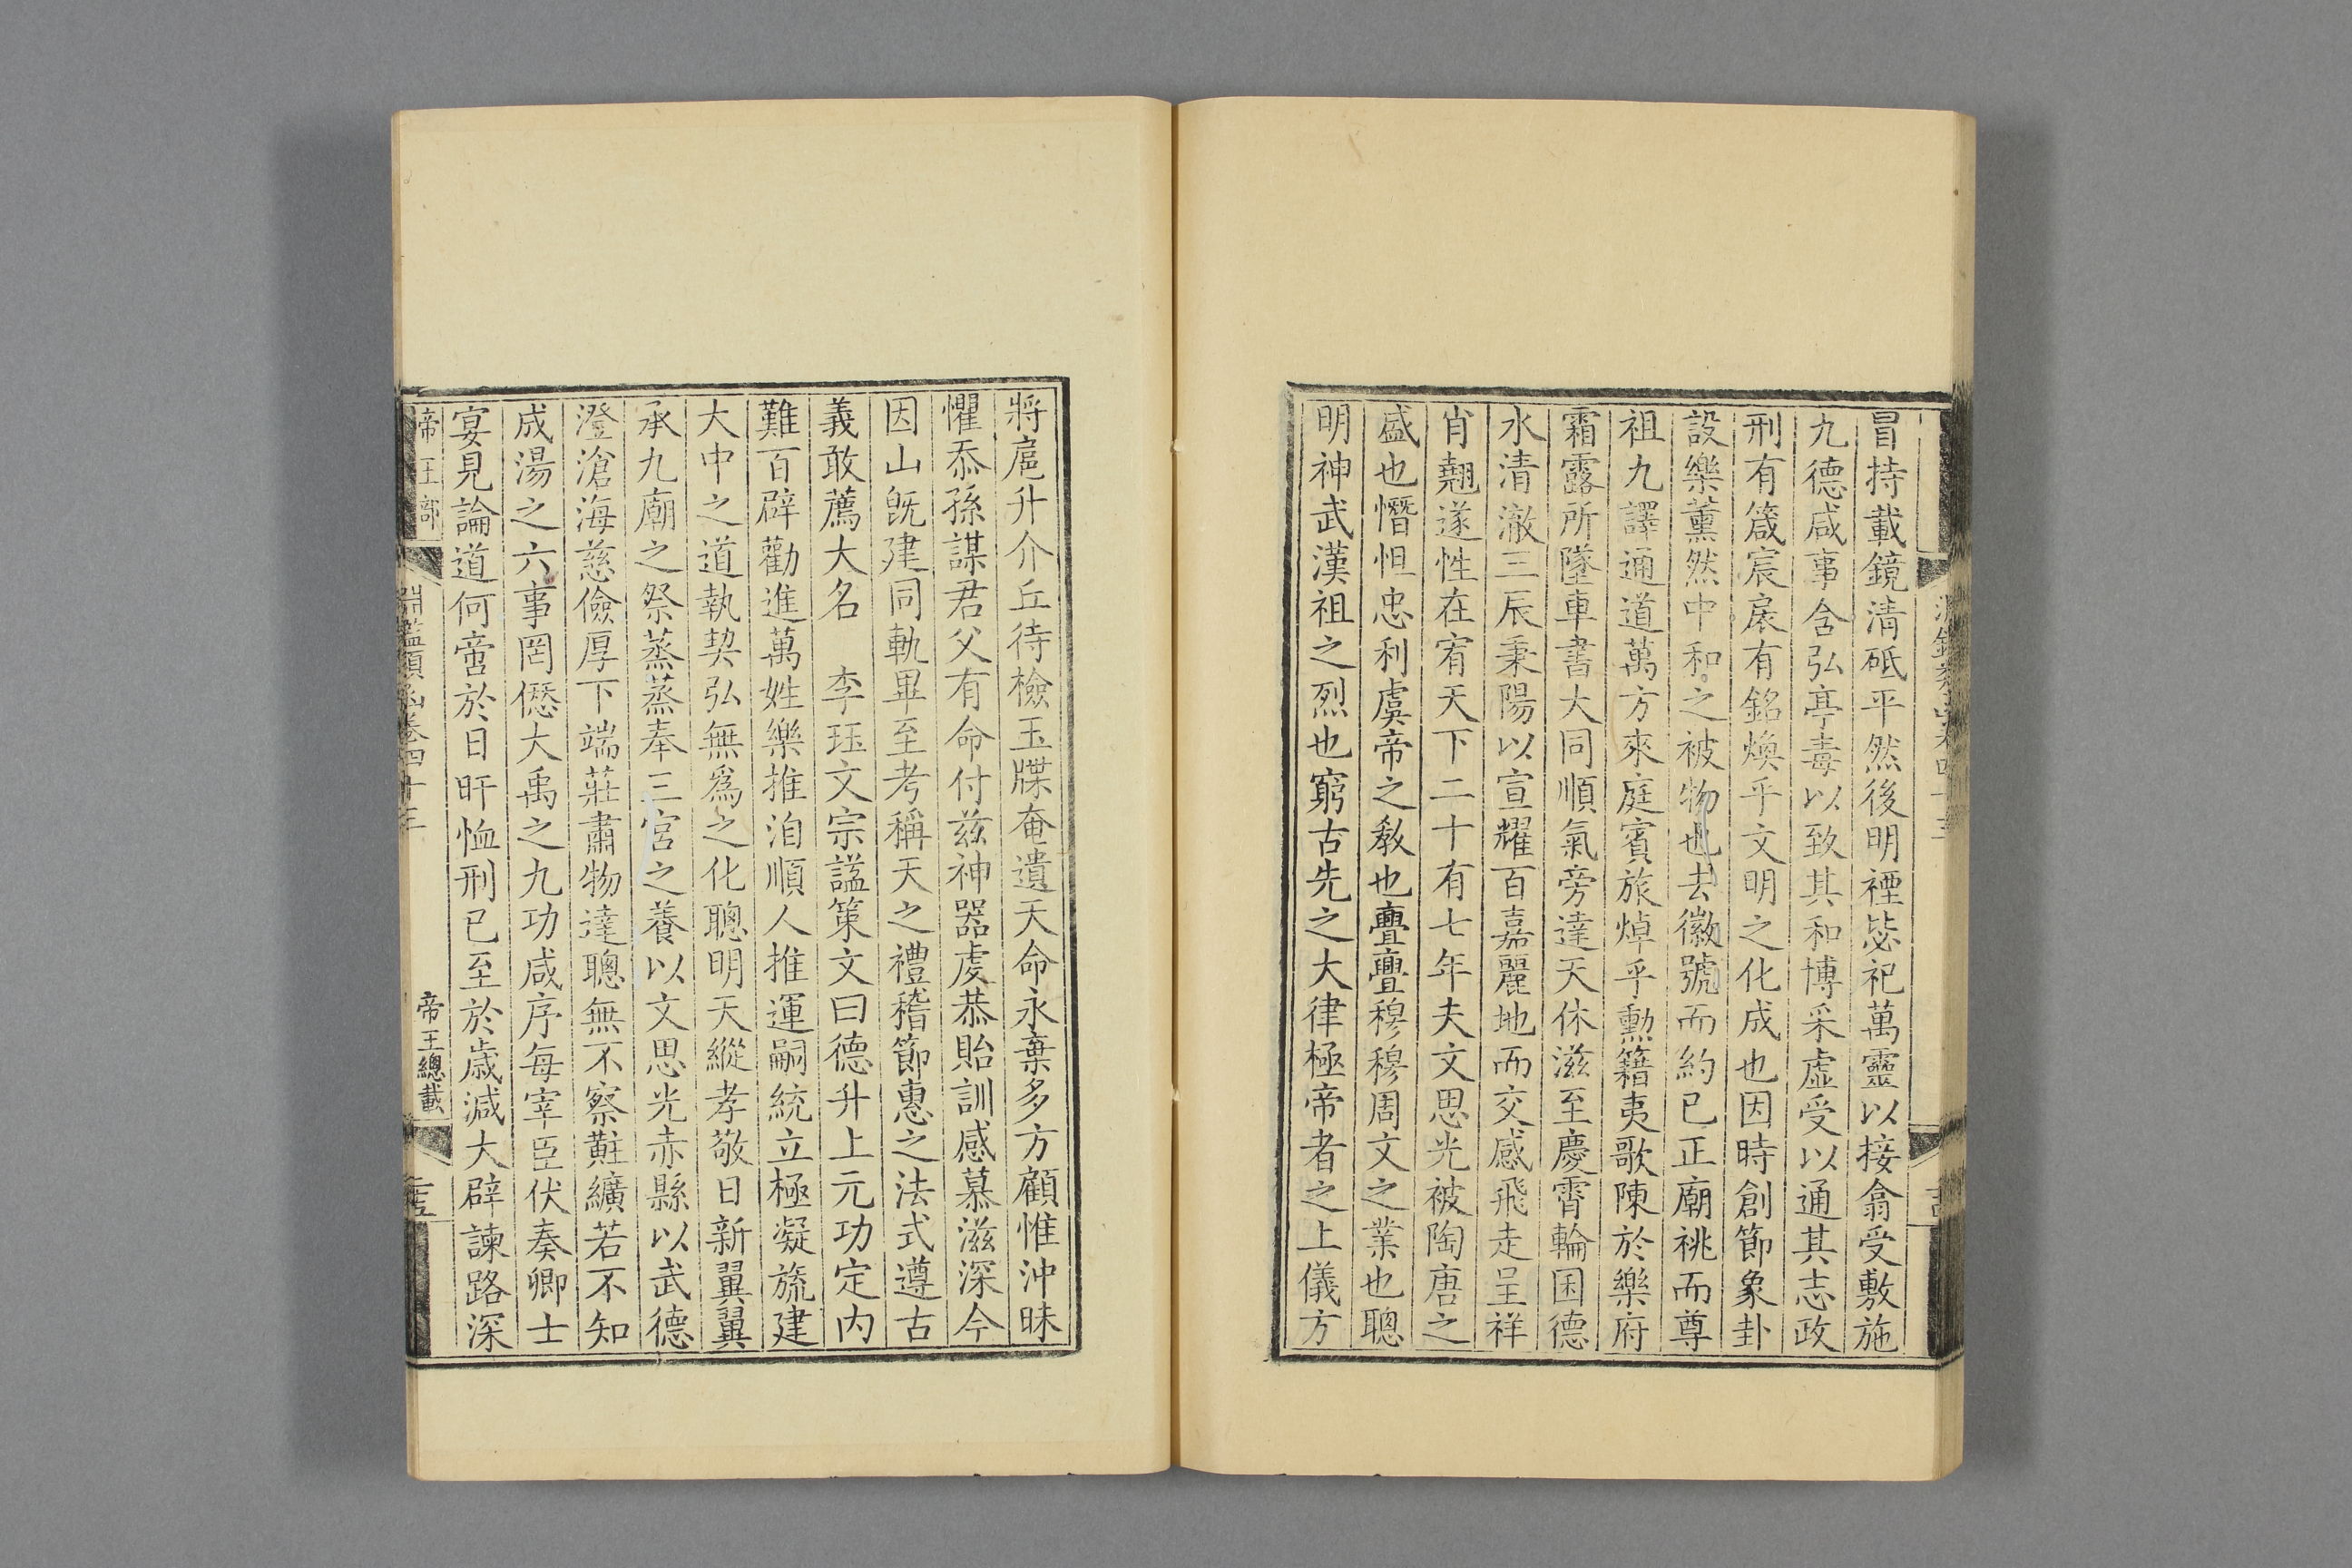 冒持載鏡淸砥平然後明禋毖祀萬靈以接翕受敷施
九德咸事含弘亭毒以致其和博采虛受以通其志政
刑有箴宸扆有銘煥乎文明之化成也因時創節象卦
設樂薰然中和之被物也去徽號而約已正廟祧而尊
祖九譯通道萬方來庭賓旅焯乎勳籍夷歌陳於樂府
霜露所墜車書大同順氣旁達天休滋至慶霄輪囷德
水清澈三辰秉陽以宣耀百嘉麗地而交感飛走呈祥
肖翹遂性在宥天下二十有七年夫文思光被陶唐之
盛也憯怛忠利虞帝之敎也亹亹穆穆周文之業也聰
明神武漢祖之烈也窮古先之大律極帝者之上儀方
將扈升介丘待檢玉牒奄遺天命永棄多方顧惟沖昧
懼忝孫謀君父有命付兹神器虔恭貽訓感慕滋深今
因山旣建同軌畢至考稱天之禮稽節惠之法式遵古
義敢薦大名　李珏文宗謚策文曰德升上元功定内
難百辟勸進萬姓樂推洎順人推運嗣統立極凝旒建
大中之道執契弘無爲之化聰明天縱孝敬日新翼翼
承九廟之祭蒸蒸奉三宮之養以文思光赤縣以武德
澄滄海慈儉厚下端莊肅物達聰無不察黈纊若不知
成湯之六事罔僁大禹之九功咸序每宰臣伏奏卿士
宴見論道何啻於日旰恤刑已至於歳減大辟諫路深
帝王部　淵鑑類函卷四十三　帝王總載　二十五